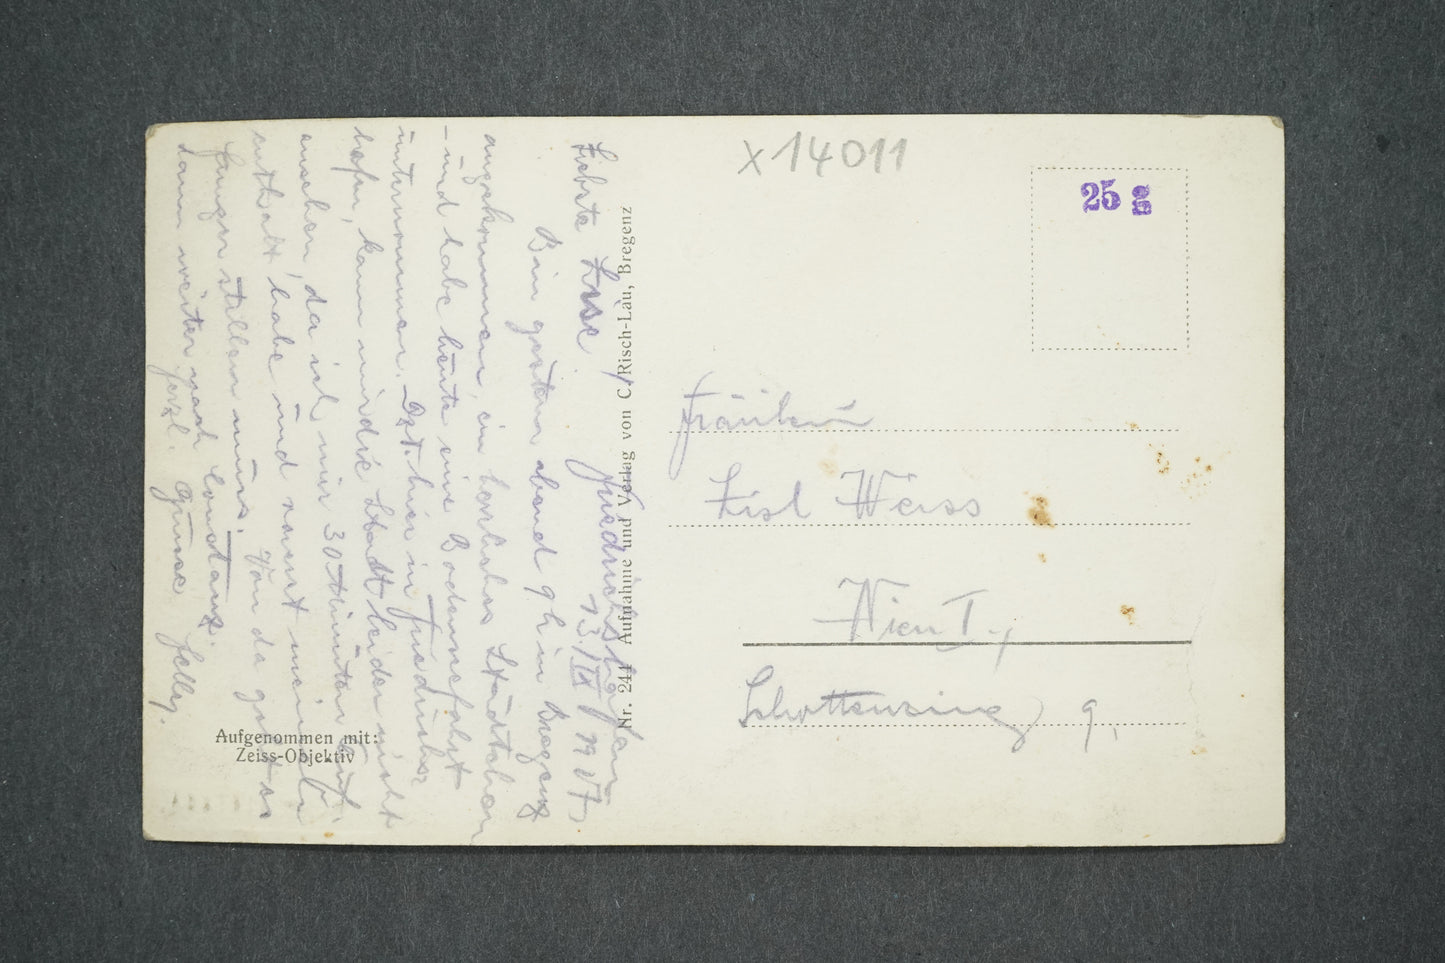 x 14011
25 g
Friedrichshafen
13./IX 1907
Liebste Lise!
Bin gestern abend 9h in Bregenz
angekommen, ein herrliches Städtchen
- und habe heute eine Bodenseefahrt
unternommen. Jetzt hier in Friedrichs-
hafen, kann mir die Stadt leider nicht
ansehen, da ich nur 30 Minuten Auf-
enthalt habe und sonst meinen
Hunger stillen muss. Von da geht es
dann weiter nach Constanz.
Herzl. Grüsse
Nr. 244 Aufnahme und Verlag von C. Risch-Lau, Bregenz
Aufgenommen mit:
Zeiss-Objektiv
Fräulein
Lisl Weiss
Wien I.,
Schottenring 9.